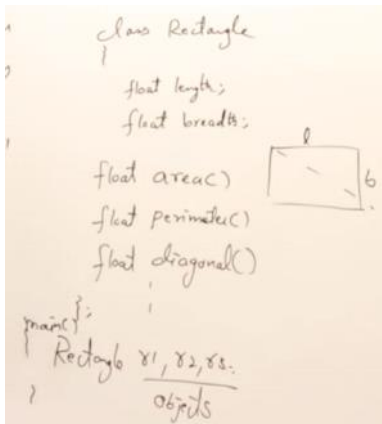 class Rectangle
{
float length;
float breadth;
l
b
float area()
float perimeter()
float diagonal()
};
main()
{
Rectangle r1, r2, r3;
objects
}